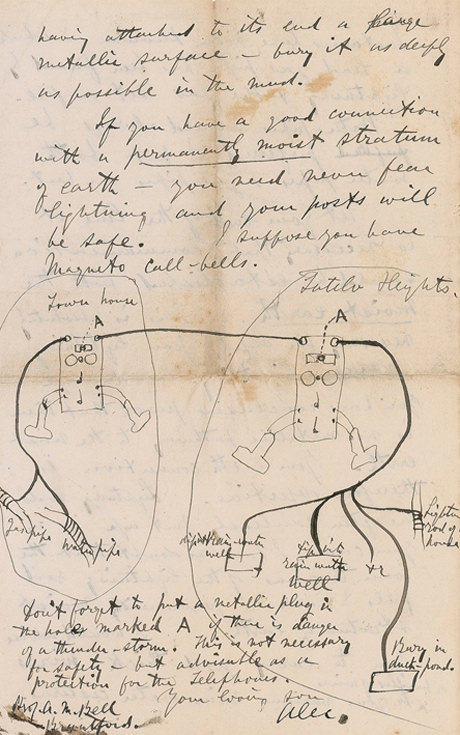 having attached to its end a large
metallic surface — bury it as deeply
as possible in the mud.
If you have a good connection
with a permanently moist stratum
of earth — you need never fear
lightning and your posts will
be safe. I suppose you have
Magneto call-bells.
Town house
Tutelo Heights.
A
A
Gas pipe
Water pipe
dip into rain-water
well
dip into
rain water
well
Lightning
rod of
house
Bury in
duck-pond.
Don't forget to put a metallic plug in
the holes marked A if there is danger
of a thunder-storm. This is not necessary
for safety but advisable as a
protection for the Telephones.
Your loving son
Alec.
Prof. A. M. Bell
Brantford.